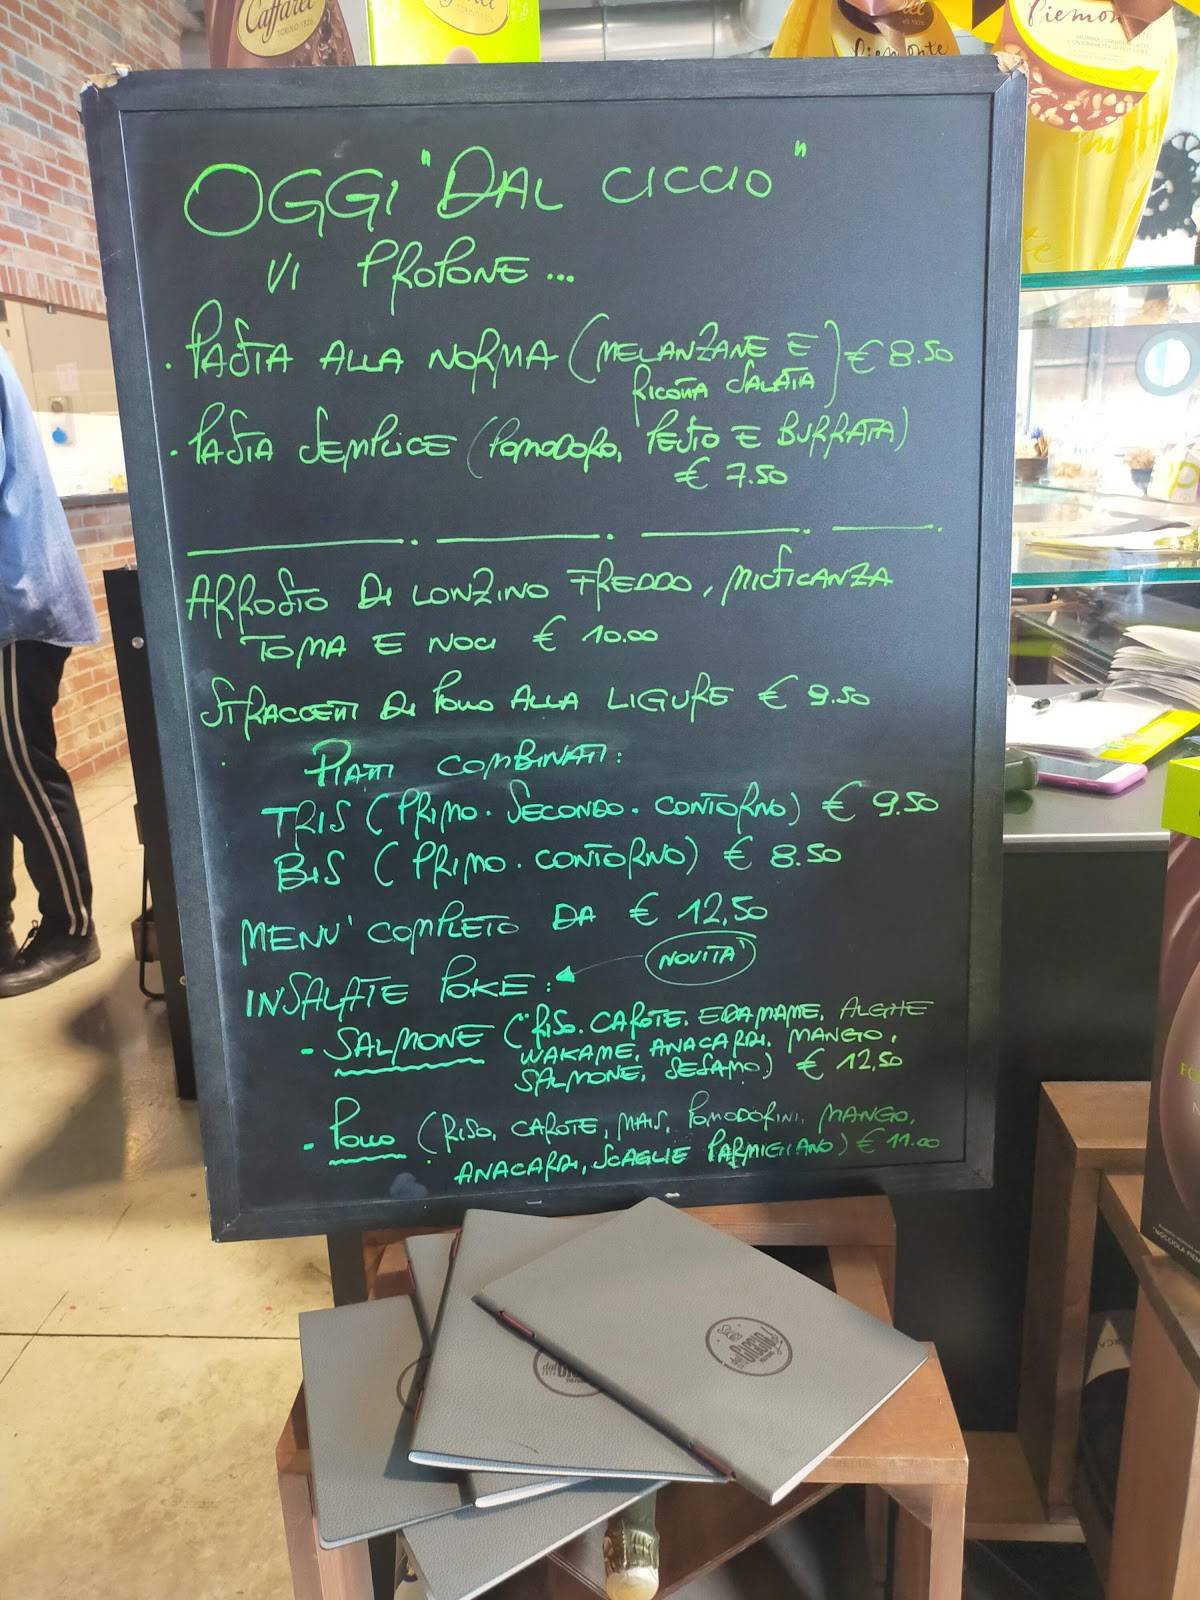 Caffarel
TORINO 1826
Piemonte
Piemonte
OGGI "DAL CICCIO"
VI PROPONE...
· PASTA ALLA NORMA (MELANZANE E RICOTTA SALATA) € 8.50
· PASTA SEMPLICE (POMODORO, PESTO E BURRATA)
€ 7.50
ARROSTO DI LONZINO FREDDO, MISTICANZA
TOMA E NOCI € 10.00
STRACCETTI DI POLLO ALLA LIGURE € 9.50
PIATTI COMBINATI:
TRIS (PRIMO. SECONDO. CONTORNO) € 9.50
BIS (PRIMO. CONTORNO) € 8.50
MENU' COMPLETO DA € 12,50
NOVITA'
INSALATE POKE:
- SALMONE (RISO. CAROTE. EDAMAME. ALGHE
WAKAME, ANACARDI, MANGO,
SALMONE, SESAMO) € 12,50
- POLLO (RISO, CAROTE, MAIS, POMODORINI, MANGO,
ANACARDI, SCAGLIE PARMIGIANO) € 11.00